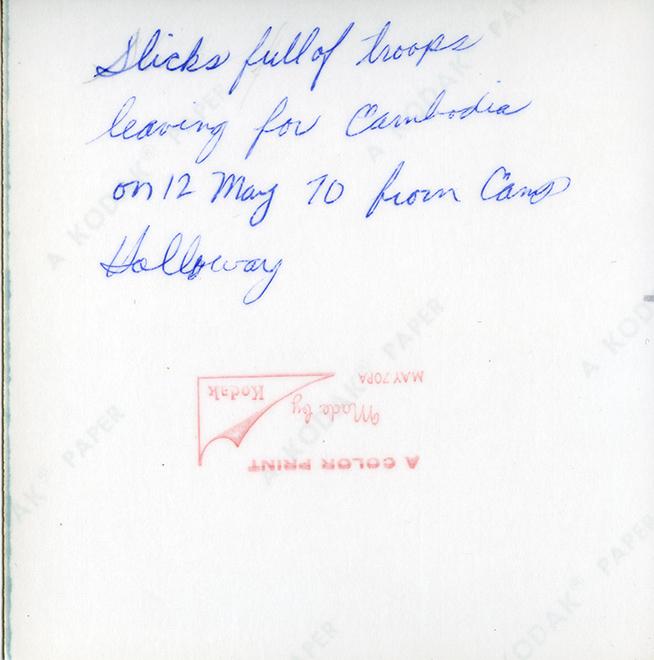 Slicks full of troops
leaving for Cambodia
on 12 May 70 from Camp
Holloway
A COLOR PRINT
Made by
Kodak
MAY70PA
A KODAK® PAPER
A KODAK® PAPER
A KODAK® PAPER
A KODAK
AK® PAPER
KODAK® PAPER
PAPER